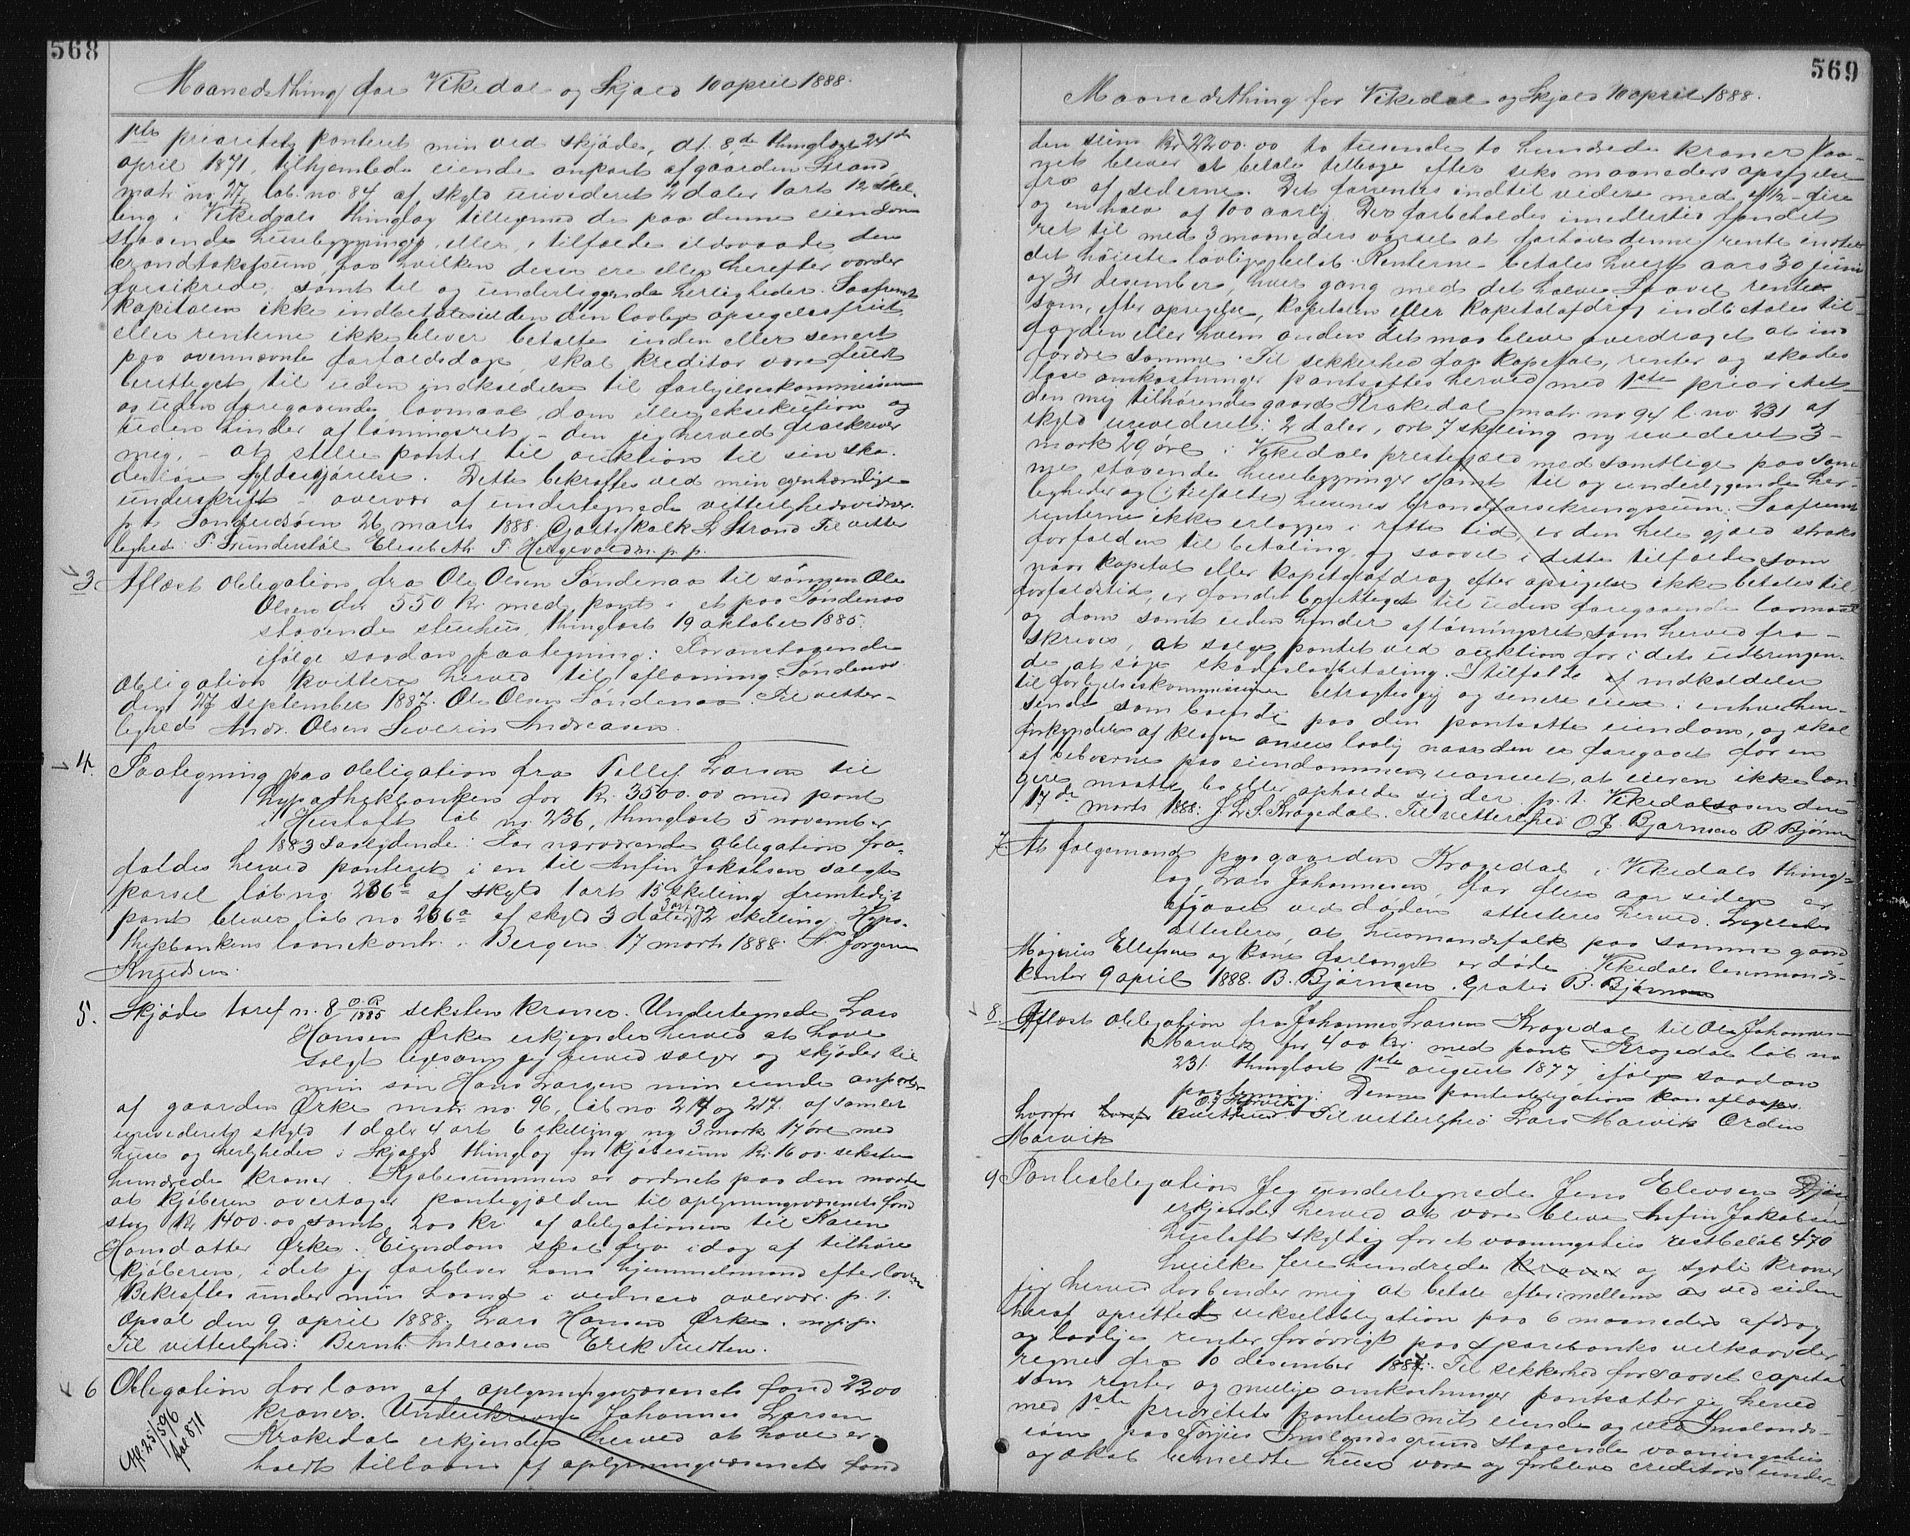 568
Maanedsthing for Vikedal og Skjold 10 april 1888.
1ste prioritets panteret min ved skjøde, dt. 8de thinglæst 24de
april 1871, tilhjemlede eiende anpart af gaarden Strand
matr no. 27, løb. no. 84 af skyld urevideret 2 daler 1 ort 12 skil-
ling i Vikedals thinglag tilligemed de paa denne eiendom
staaende husebygninger eller, i tilfælde ildsvaade, den
brandtakstsum, for hvilken disse ere eller herefter vorder
forsikrede, samt til og underliggende herligheder. Saafremt
kapitalen ikke indbetales inden den lovlige opsigelsesfrist,
eller renterne ikke bliver betalte inden eller senest
paa ovennævnte forfaldsdage, skal kreditor være fuldt
berettiget til uden indkaldelse til forligelseskommission
og uden foregaaende lovmaal dom eller eksekution og
uden hinder af løsningsret, - den jeg herved fraskriver
mig, - at stille pantet til auktion til sin ska-
desløse fyldestgjørelse. Dette bekræftes ved min egenhændige
underskrift i overvær af undertegnede vitterlighedsvidner.
p. t. Sandeidsøen 26 marts 1888. Falk L Strand Til vitter
lighed: T. Sunderstøl Elisebeth T. m. p. p.
3. Aflæst obligation fra Ole Olsen Søndenaa til sønnen Ole
Olsen der 550 kr med pant i et paa Søndenaa
staaende stuehus, thinglæst 19 oktober 1885.
ifølge saadan paategning: Foranstaaende
obligation kvitteres herved til aflæsning Søndenaa
den 27 september 1887. Ole Olsen Søndenaa. Til vitter-
lighed Andr. Olsen Severin Andreasen.
4. Paategning paa obligation fra Tollef Larsen til
hypothekbanken for kr. 3500.00 med pant
i Hustoft løb no 236, thinglæst 5 november
1883 saalydende: For nærværende obligation fra-
faldes herved panteret i en til Anfin Jakobsen solgte
parsel løb no 236b af skyld 1 ort 15 skilling fremtidigt
pant bliver løb no 236a af skyld 3 daler 3 ort og 2 skilling. Hypo-
thekbankens laanekontr. i Bergen 17 marts 1888. Jørgen
Knudsen.
5. Skjøde taref n. 8 1885 seksten kroner. Undertegnede Lars
Hansen Ørke erkjender herved at have
solgt ligesom jeg herved sælger og skjøder til
min søn Hans Larsen min eiende anparter
af gaarden Ørke matr no. 96, løb no. 214 og 217 af samlet
urevideret skyld 1 daler 4 ort 6 skilling, ny 3 mark 17 øre med
huse og herligheder i Skjolds thinglag for kjøbesum kr. 1600. seksten
hundrede kroner. Kjøbesummen er ordnet paa den maade
at kjøberen overtager pantegjælden til oplysningsvæsenets fond
stor kr 1400.00 samt 200 kr. af obligationen til Karen
Hansdatter Ørke. Eiendom skal fra idag af tilhøre
kjøberen, idet jeg forbliver hans hjemmelsmand efter loven
Bekræftes under min haand i vidners overvær. p. t.
Opsal den 9 april 1888. Lars Hansen Ørke. m.p.p.
Til vitterlighed: Bernt Andreasen Erik Tuesten.
6 Obligation for laan af oplysningsvæsenets fond 2200
kroner. Underskrevne Johannes Larsen
Krakedal erkjender herved at have er-
holdt tillaans af oplysningsvæsenets fond
569
Maanedsthing for Vikedal og Skjold 10 april 1888.
den sum kr 2200.00 to tusende to hundrede kroner, som
mit bliver at betale tilbage efter seks maaneders opsigelse
fra af siderne. Det forrentes indtil videre med 4½ - fire
og en halv af 100 aarlig. Der forbeholdes imidlertid fondet
ret til med 3 maaneders varsel at forhøie denne rente indtil
det høieste lovlige beløb. Renterne betales hvert aars 30 juni
og 31 desember, hver gang med det halve. Saavel renter
som, efter opsigelse, kapitalen eller kapitalafdrag indbetales til
fogden eller hvem anden det maa blive overdraget at ind
fordre samme. Til sikkerhed for kapital, renter og skades
løse omkostninger pantsættes herved med 1ste prioritet
den mig tilhørende gaard Krakedal matr no 94 l. no 231 af
skyld urevideret: 2 daler, ort 7 skilling ny revideret 3 -
mark 29 øre i Vikedals prestegjeld med samtlige paa sam
me staaende husebygninger samt til og underliggende her-
ligheder og (i tilfælde) husenes brandforsikringssum. Saafremt
renterne ikke erlægges i rette tid, er den hele gjæld straks
forfalden til betaling, og saavel i dette tilfælde som
naar kapital eller kapitalafdrag efter opsigelse ikke betales til
forfaldstid, er fondet berettiget til uden foregaaende lovmaal
og dom samt uden hinder af løsningsret, som herved fra-
skrives, at sælge pantet ved auktion for i dets udbringen-
de at søge skadesløs betaling. I tilfælde af indkaldelse
til forligelseskommission betragtes jeg og senere eiere i enhver hen-
seende som boende paa den pantsatte eiendom, og skal
forkyndelse af klagen ansees lovlig naar den er foregaaet for en
af beboerne paa eiendommen, uanseet, at eieren ikke læn-
gere maatte bo eller opholde sig der. p. t. Vikedalsosen den
17de marts 1888. J. L. S. Kragedal. Til vitterlighed O J Bjørnsen B Bjørnsen
7. At følgemand paa gaarden Kragedal i Vikedals thing-
lag Lars Johannesen, for flere aar siden er
afgaaet ved døden attesteres herved. Ligeledes
attesteres, at husmandsfolk paa samme gaard
Magnus Ellefsen og kone forlængst er døde Vikedals lensmands-
kontor 9 april 1888. B. Bjørnsen. Gratis B. Bjørnsen
8. Aflæst obligation fra Johannes Larsen Kragedal til Ole Johannesen
Marvik for 400 kr. med pant i Kragedal løb no
231. thinglæst 1ste august 1877 ifølge saadan
paategning: Denne panteobligation kan aflæses.
hvorfor kvitteres Til vitterlighed Lars Marvik Orden
Marvik
9 Panteobligation Jeg undertegnede Jens Elevsen
erkjender herved at være bleven Anfin Jakobsen
Hustoft skyldig for et vaaningshus restbeløb 470
hvilke fire hundrede kroner og sytti kroner
jeg herved forbinder mig at betale efter imellem os ved siden
heraf oprettede vekselobligation paa 6 maaneders afdrag
og lovlige renter forøvrigt paa sparebanks vilkaar der
regnes fra 10 desember 1887. Til sikkerhed for saavel capital
som renter og mulige omkostninger pantsætter jeg herved
med 1ste prioritets panteret mit eiende og ved Imslands-
søen paa Torgers Imslands grund staaende vaaningshus
og skal bemeldte hus være og forblive creditors under-